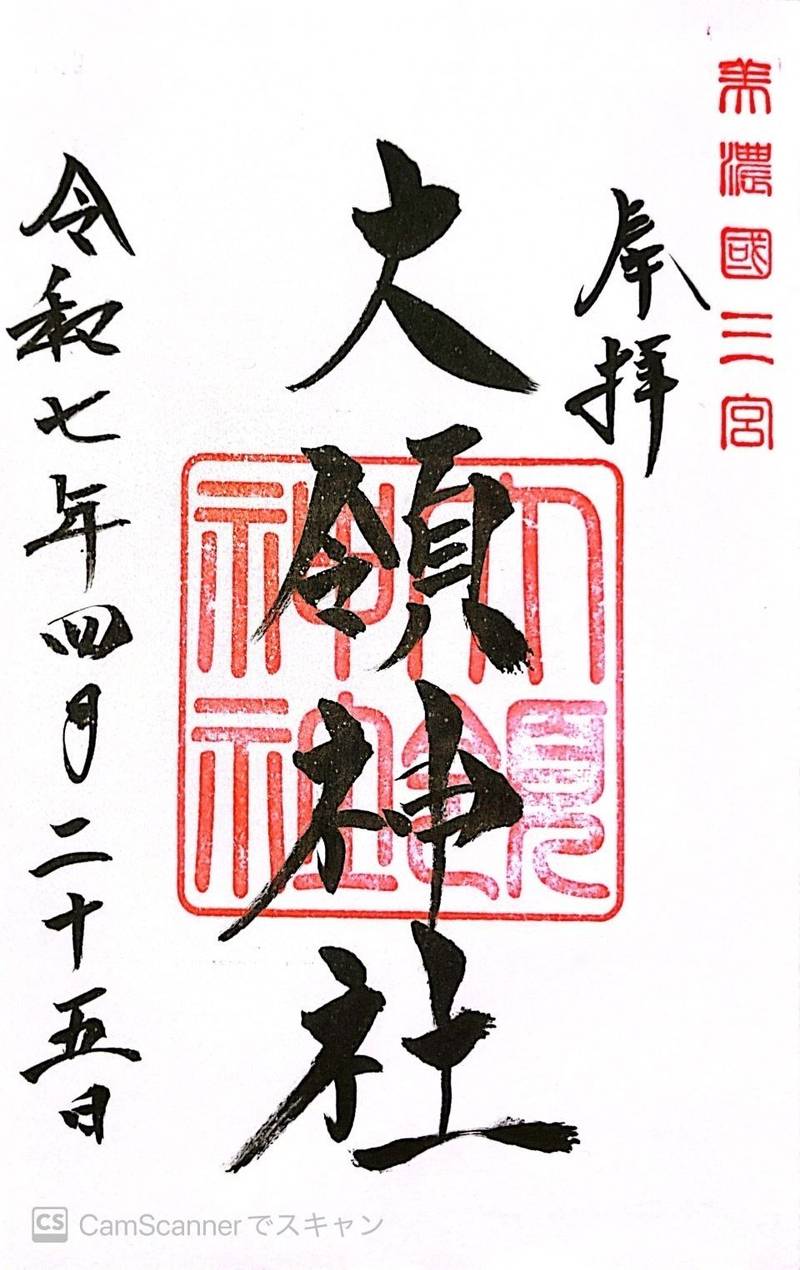 美濃國三宮
奉拝
大領神社
大領神社
令和七年四月二十五日
CS CamScannerでスキャン